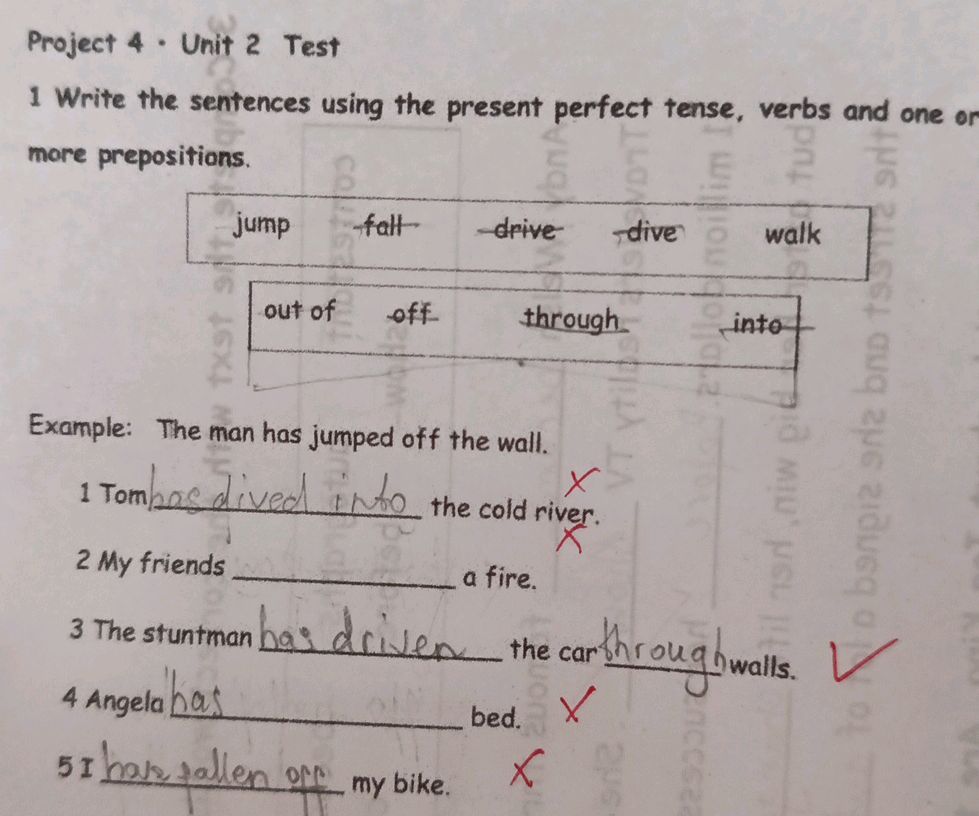 Project 4 · Unit 2 Test
1 Write the sentences using the present perfect tense, verbs and one or
more prepositions.
jump fall drive dive walk
out of off through into
Example: The man has jumped off the wall.
1 Tom has dived into the cold river.
2 My friends ____________ a fire.
3 The stuntman has driven the car through walls.
4 Angela has ____________ bed.
5 I have fallen off my bike.